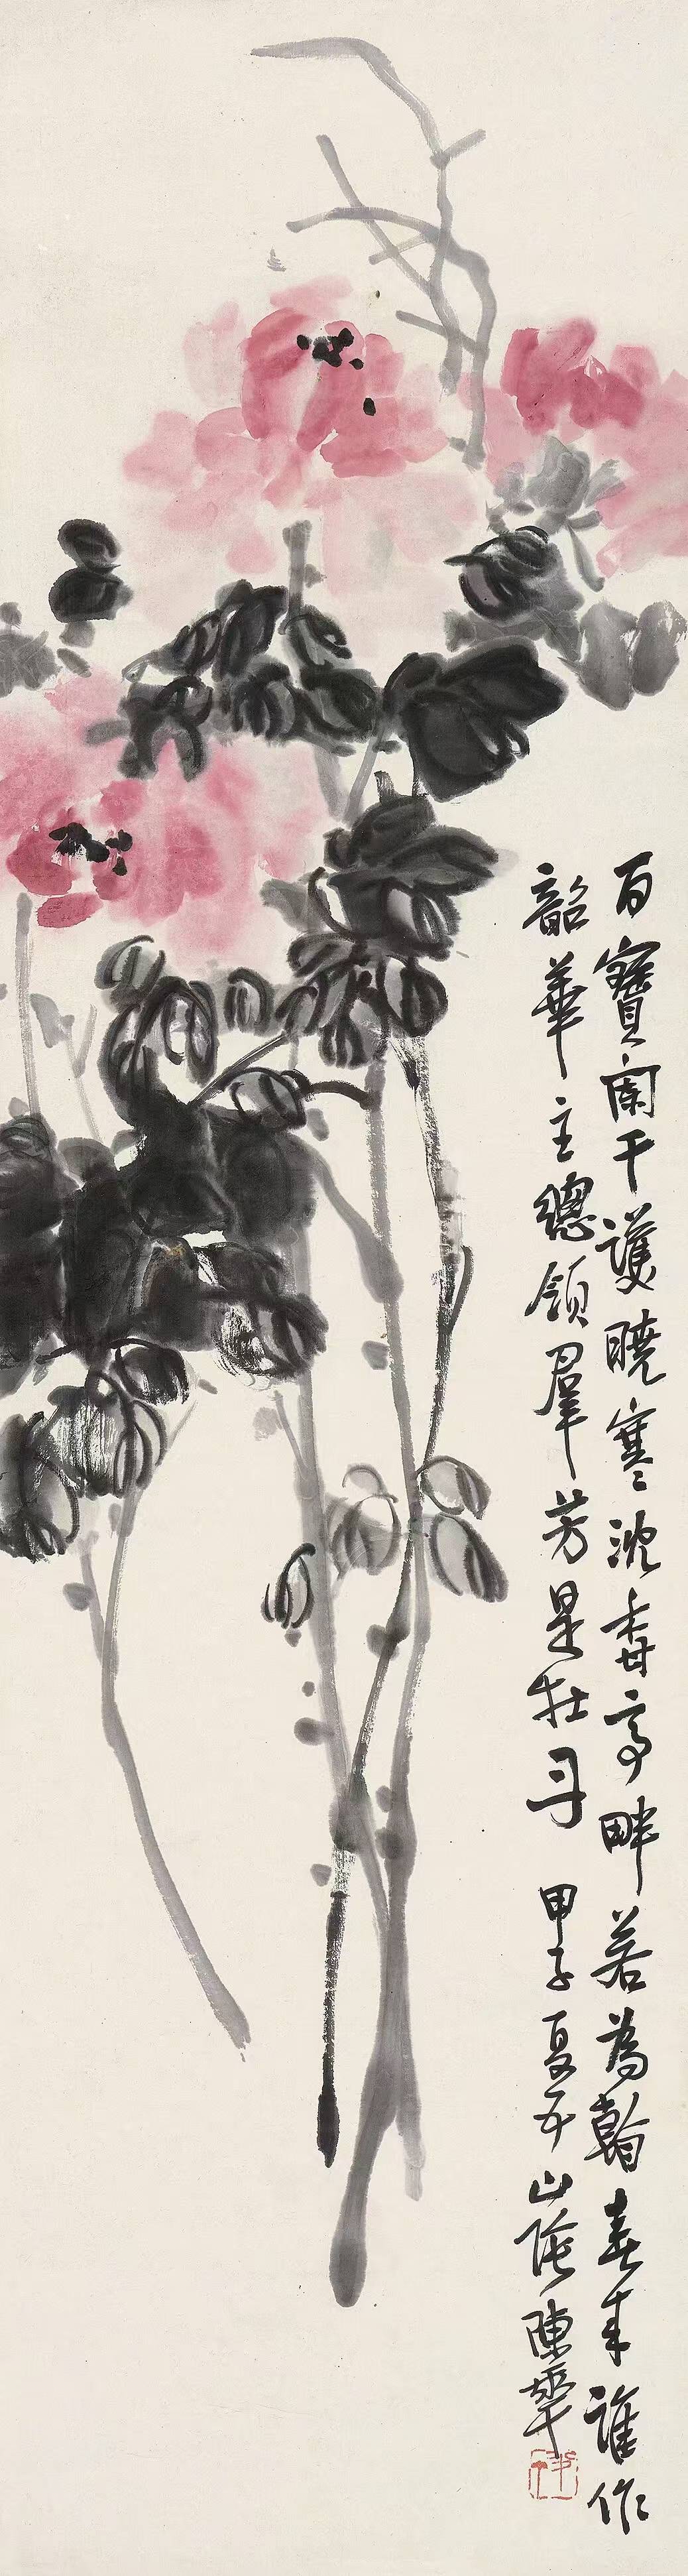 百寶闌干護曉寒沈香亭畔若為看春來誰作
韶華主總領羣芳是牡丹 甲子夏五山陰陳半丁